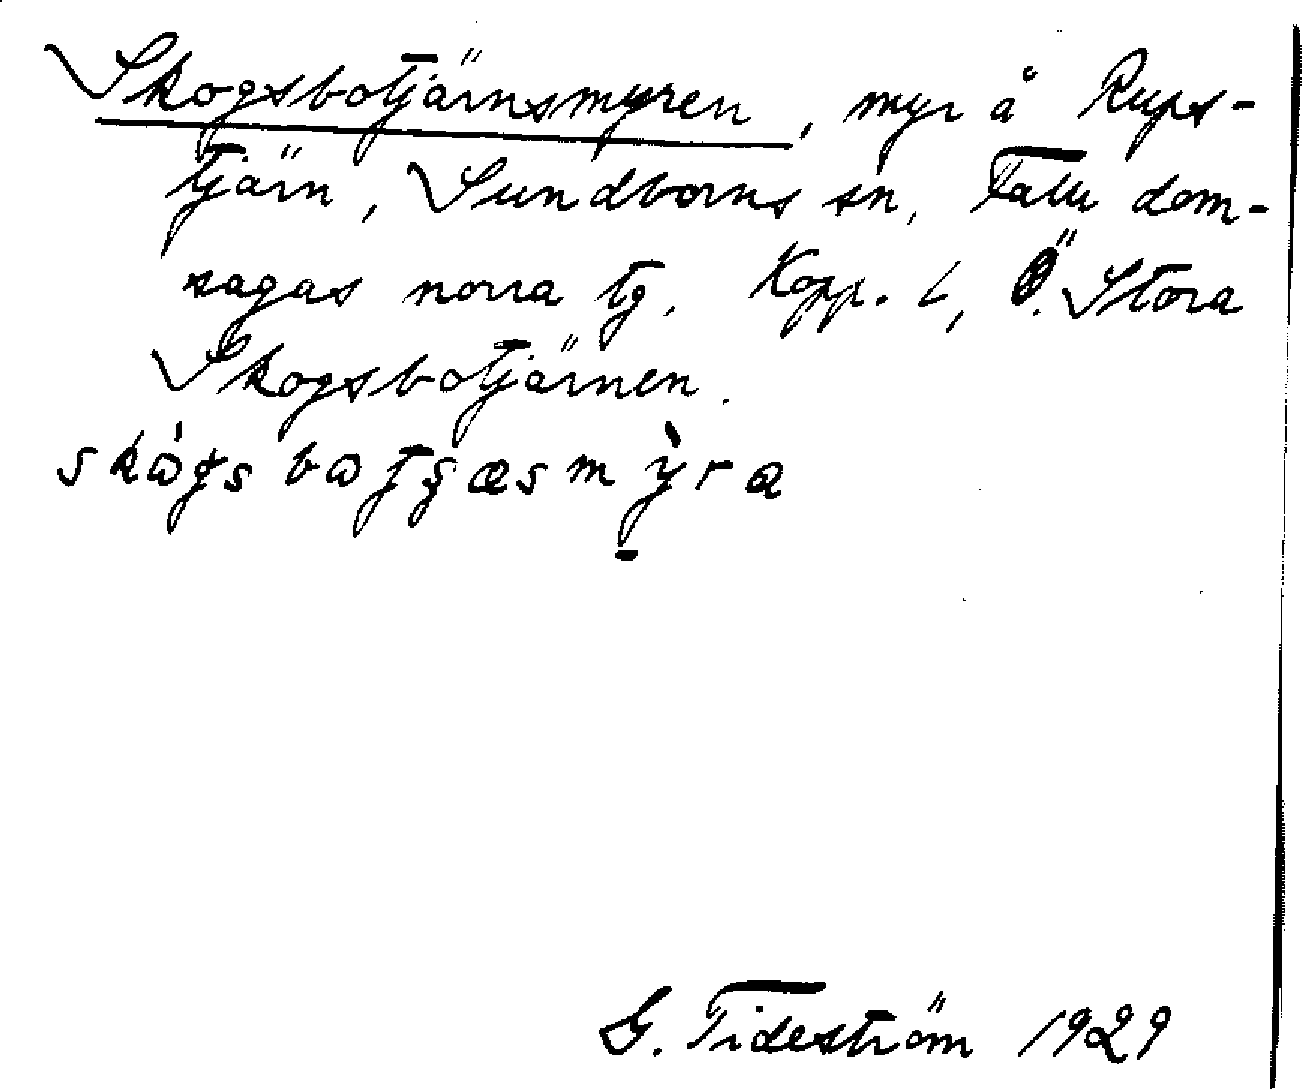 Skogsbotjärnsmyren, myr å Rups-
tjärn, Sundborns sn, Falu dom-
sagas norra tg, Kopp. l, Ö. Stora
Skogsbotjärnen.
G. Tideström 1929